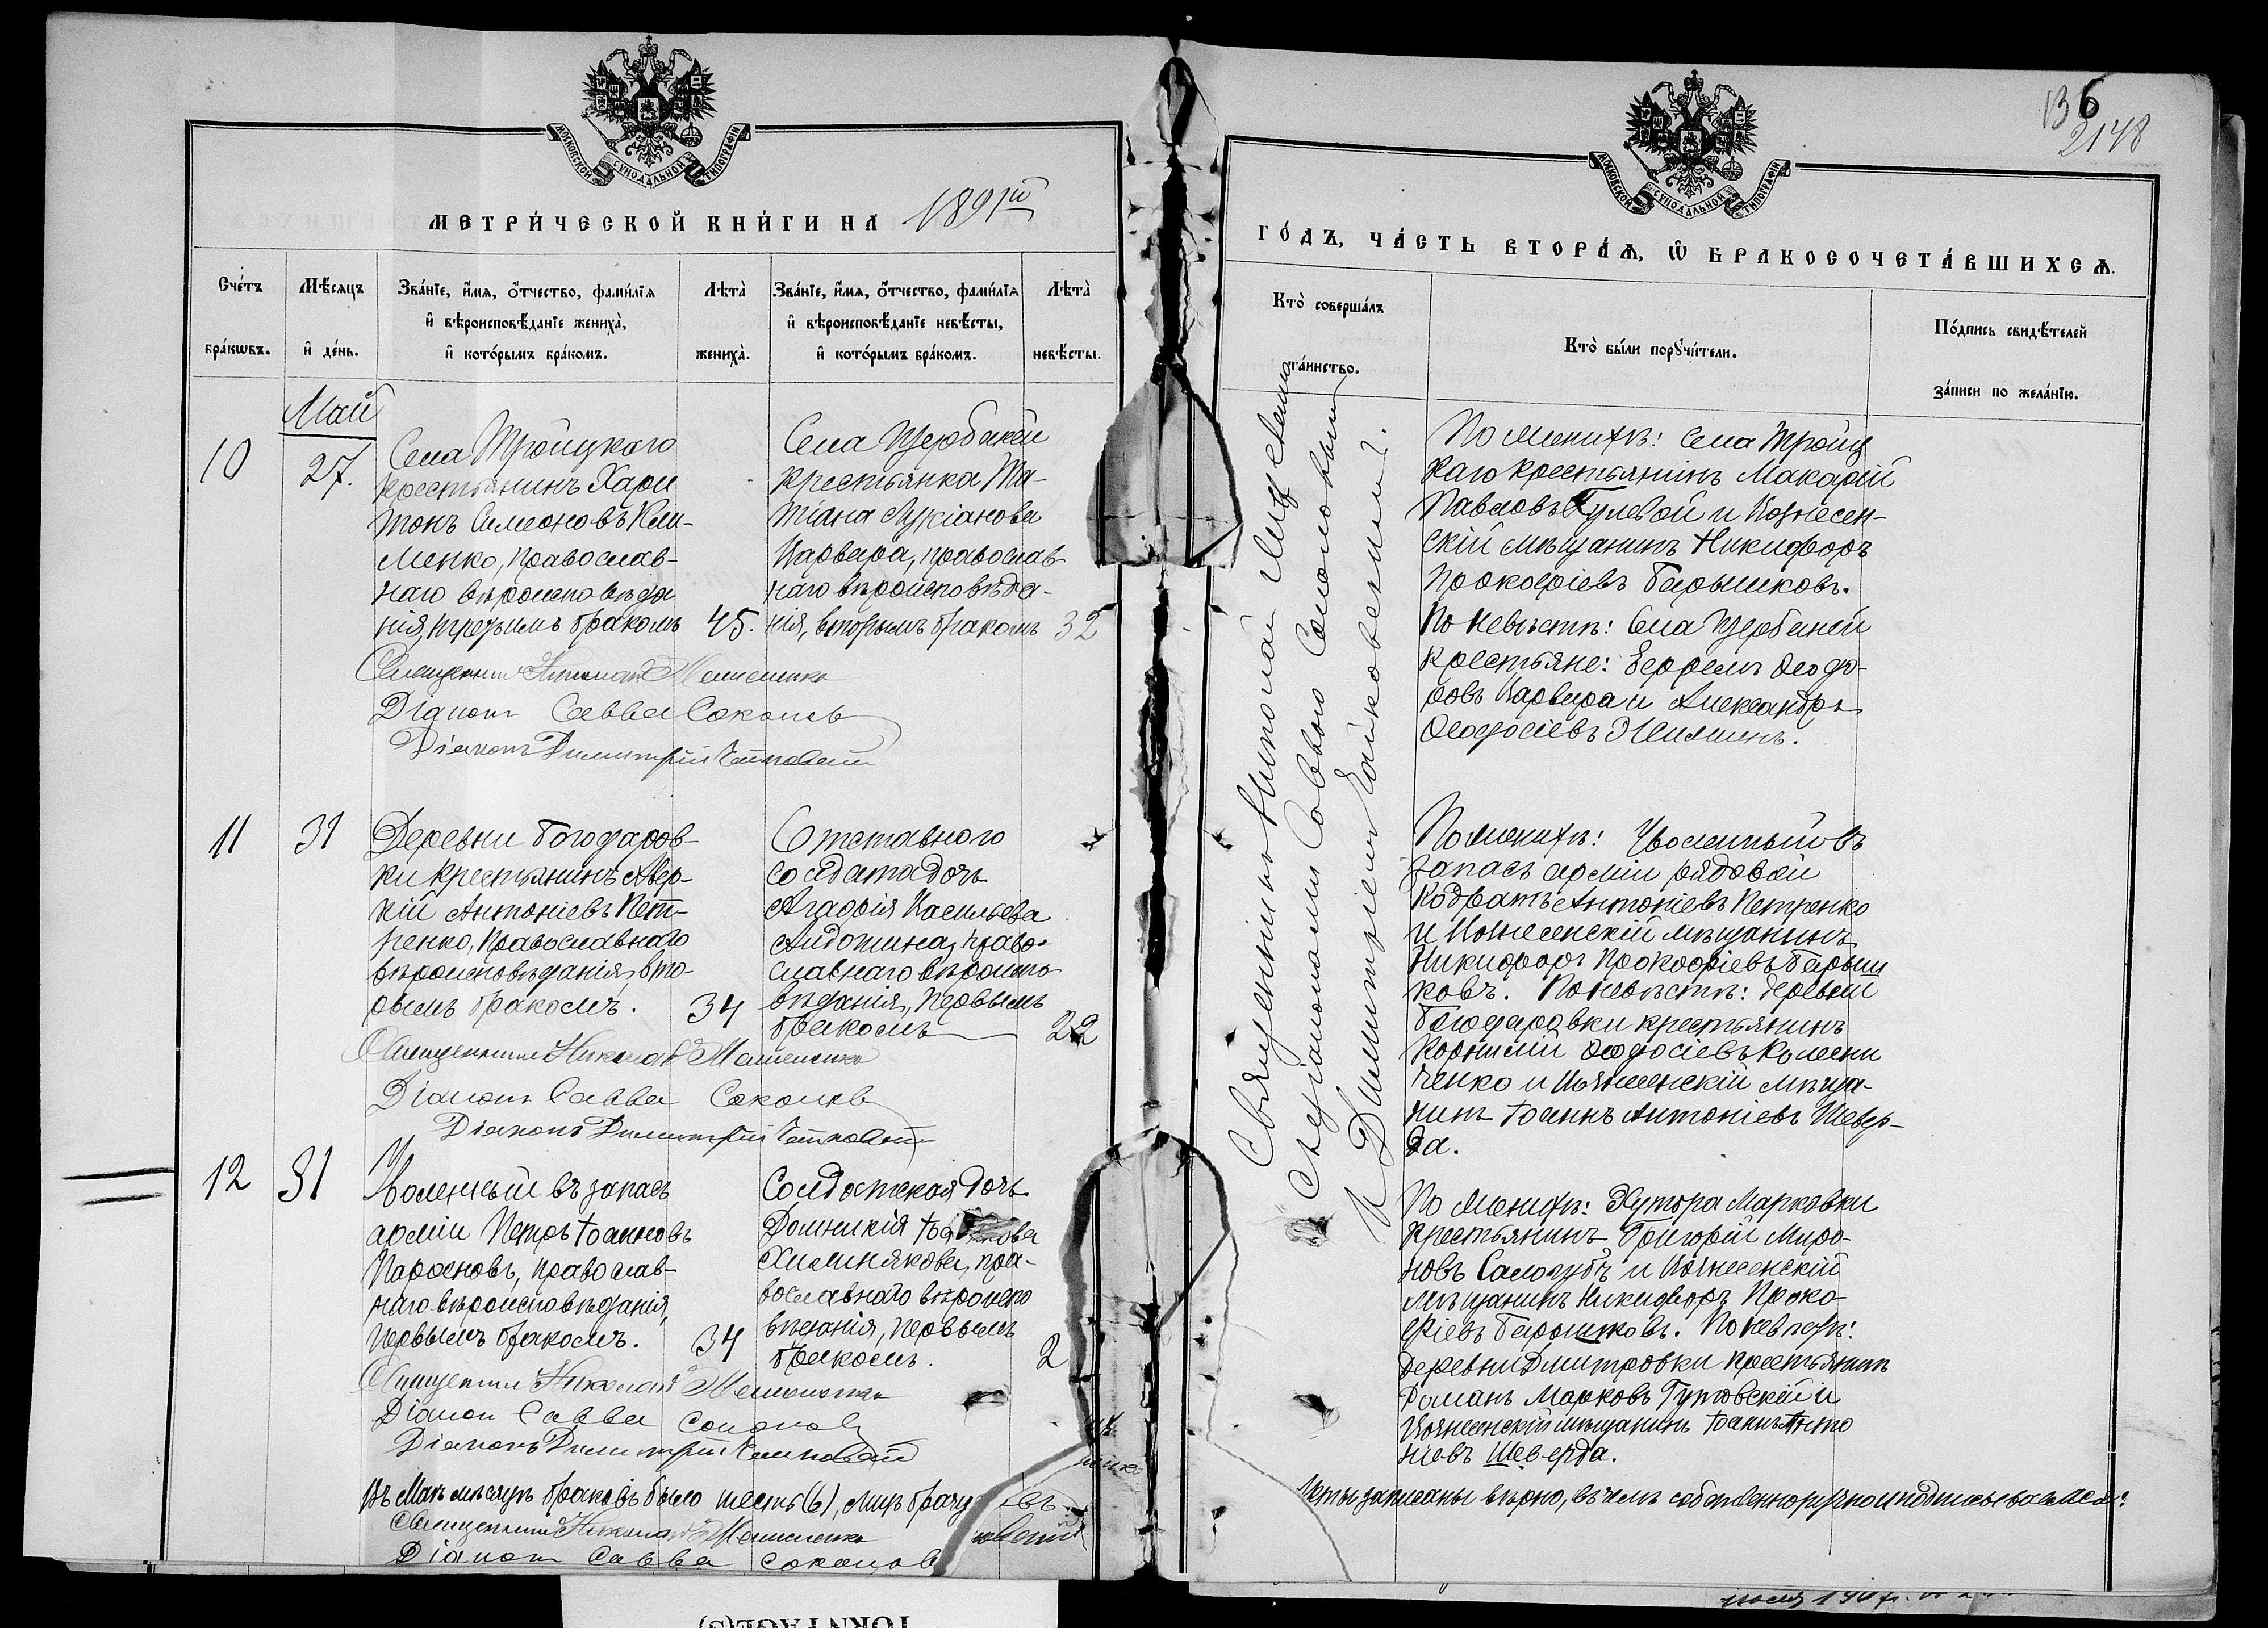 МОСКОВСКОЙ СѴНОДАЛЬНОЙ ТИПОГРАФІИ
МЕТРИ́ЧЕСКОЙ КНИ́ГИ НА 1891й
Сче́тъ бра́кѡвъ.
Мѣ́сяцъ и҆ де́нь.
Зва́нїе, и҆́мя, ѻ҆́тчество, фами́лїя
и҆ вѣроисповѣ́данїе жениха̀,
и҆ кото́рымъ бра́комъ.
Лѣта̀ жениха̀.
Зва́нїе, и҆́мя, ѻ҆́тчество, фами́лїя
и҆ вѣроисповѣ́данїе невѣ́сты,
и҆ кото́рымъ бра́комъ.
Лѣта̀ невѣ́сты.
Май
10
27.
Села Троицкаго
крестьянинъ Хари
тонъ Симеоновъ Кли-
менко, православ-
наго вѣроисповѣда
нія, третьимъ бракомъ
45.
Села Щербаней
крестьянка Та-
тіана Лукіанова
Варвара, православ-
наго вѣроисповѣда-
нія, вторымъ бракомъ
32
Священникъ Николай
Діаконъ Савва Соколовъ
Діаконъ Димитрій
11
31
Деревни Богодаров-
ки крестьянинъ Авер-
кій Антоніевъ Пет-
ренко, православнаго
вѣроисповѣданія, вто-
рымъ бракомъ.
34
Отставного
солдата дочь
Агафія Васильева
право-
славнаго вѣроиспо
вѣданія, первымъ
бракомъ
22
Священникъ Николай
Діаконъ Савва Соколовъ
Діаконъ Димитрій
12
31
Уволенный въ запасъ
арміи Петръ Іоанновъ
православ-
наго вѣроисповѣданія,
первымъ бракомъ.
34
Солдатская дочь
Домникія
пра-
вославнаго вѣроиспо
вѣданія, первымъ
бракомъ.
2
Священникъ Николай
Діаконъ Савва Соколовъ
Діаконъ Димитрій
Въ Маѣ мѣсяцѣ браковъ было шесть (6),
Священникъ Николай
Діаконъ Савва Соколовъ
136
2148
МОСКОВСКОЙ СѴНОДАЛЬНОЙ ТИПОГРАФІИ
ГО́ДЪ, ЧА́СТЬ ВТОРА́Ѧ, Ѡ҆ БРАКОСОЧЕТА́ВШИХСѦ.
Кто̀ соверша́лъ та́инство.
Кто̀ бы́ли порꙋчи́тели.
По́дпись свидѣ́телей за́писи по жела́нїю.
Священникъ Николай
съ діакономъ Саввою Соколовымъ
и Димитріемъ
По женихѣ: села Троиц
каго крестьянинъ Макарій
Павловъ Гулевой и Вознесен-
скій мѣщанинъ Никифоръ
Прокофіевъ Барышковъ.
По невѣстѣ: села Щербаней
крестьяне: Ефремъ Феодо-
ровъ Варвара и Александръ
Феодосіевъ
По женихѣ: Уволенный въ
запасъ арміи рядовой
Кодратъ Антоніевъ Петренко
и Вознесенскій мѣщанинъ
Никифоръ Прокофіевъ Барыш
ковъ. По невѣстѣ: деревни
Богодаровки крестьянинъ
Корнилій Феодосіевъ Колесни
ченко и Вознесенскій мѣща-
нинъ Іоаннъ Антоніевъ Шевер-
да.
По женихѣ: Хутора Марковки
крестьянинъ Григорій Миро-
новъ Салогубъ и Вознесенскій
мѣщанинъ Никифоръ Проко-
фіевъ Барышковъ. По невѣстѣ:
деревни Дмитровки крестьянинъ
Романъ Марковъ Гутовскій и
Вознесенскій мѣщанинъ Іоаннъ Анто
ніевъ Шеверда.
записаны вѣрно, въ чемъ собственноручно и подписываемся: